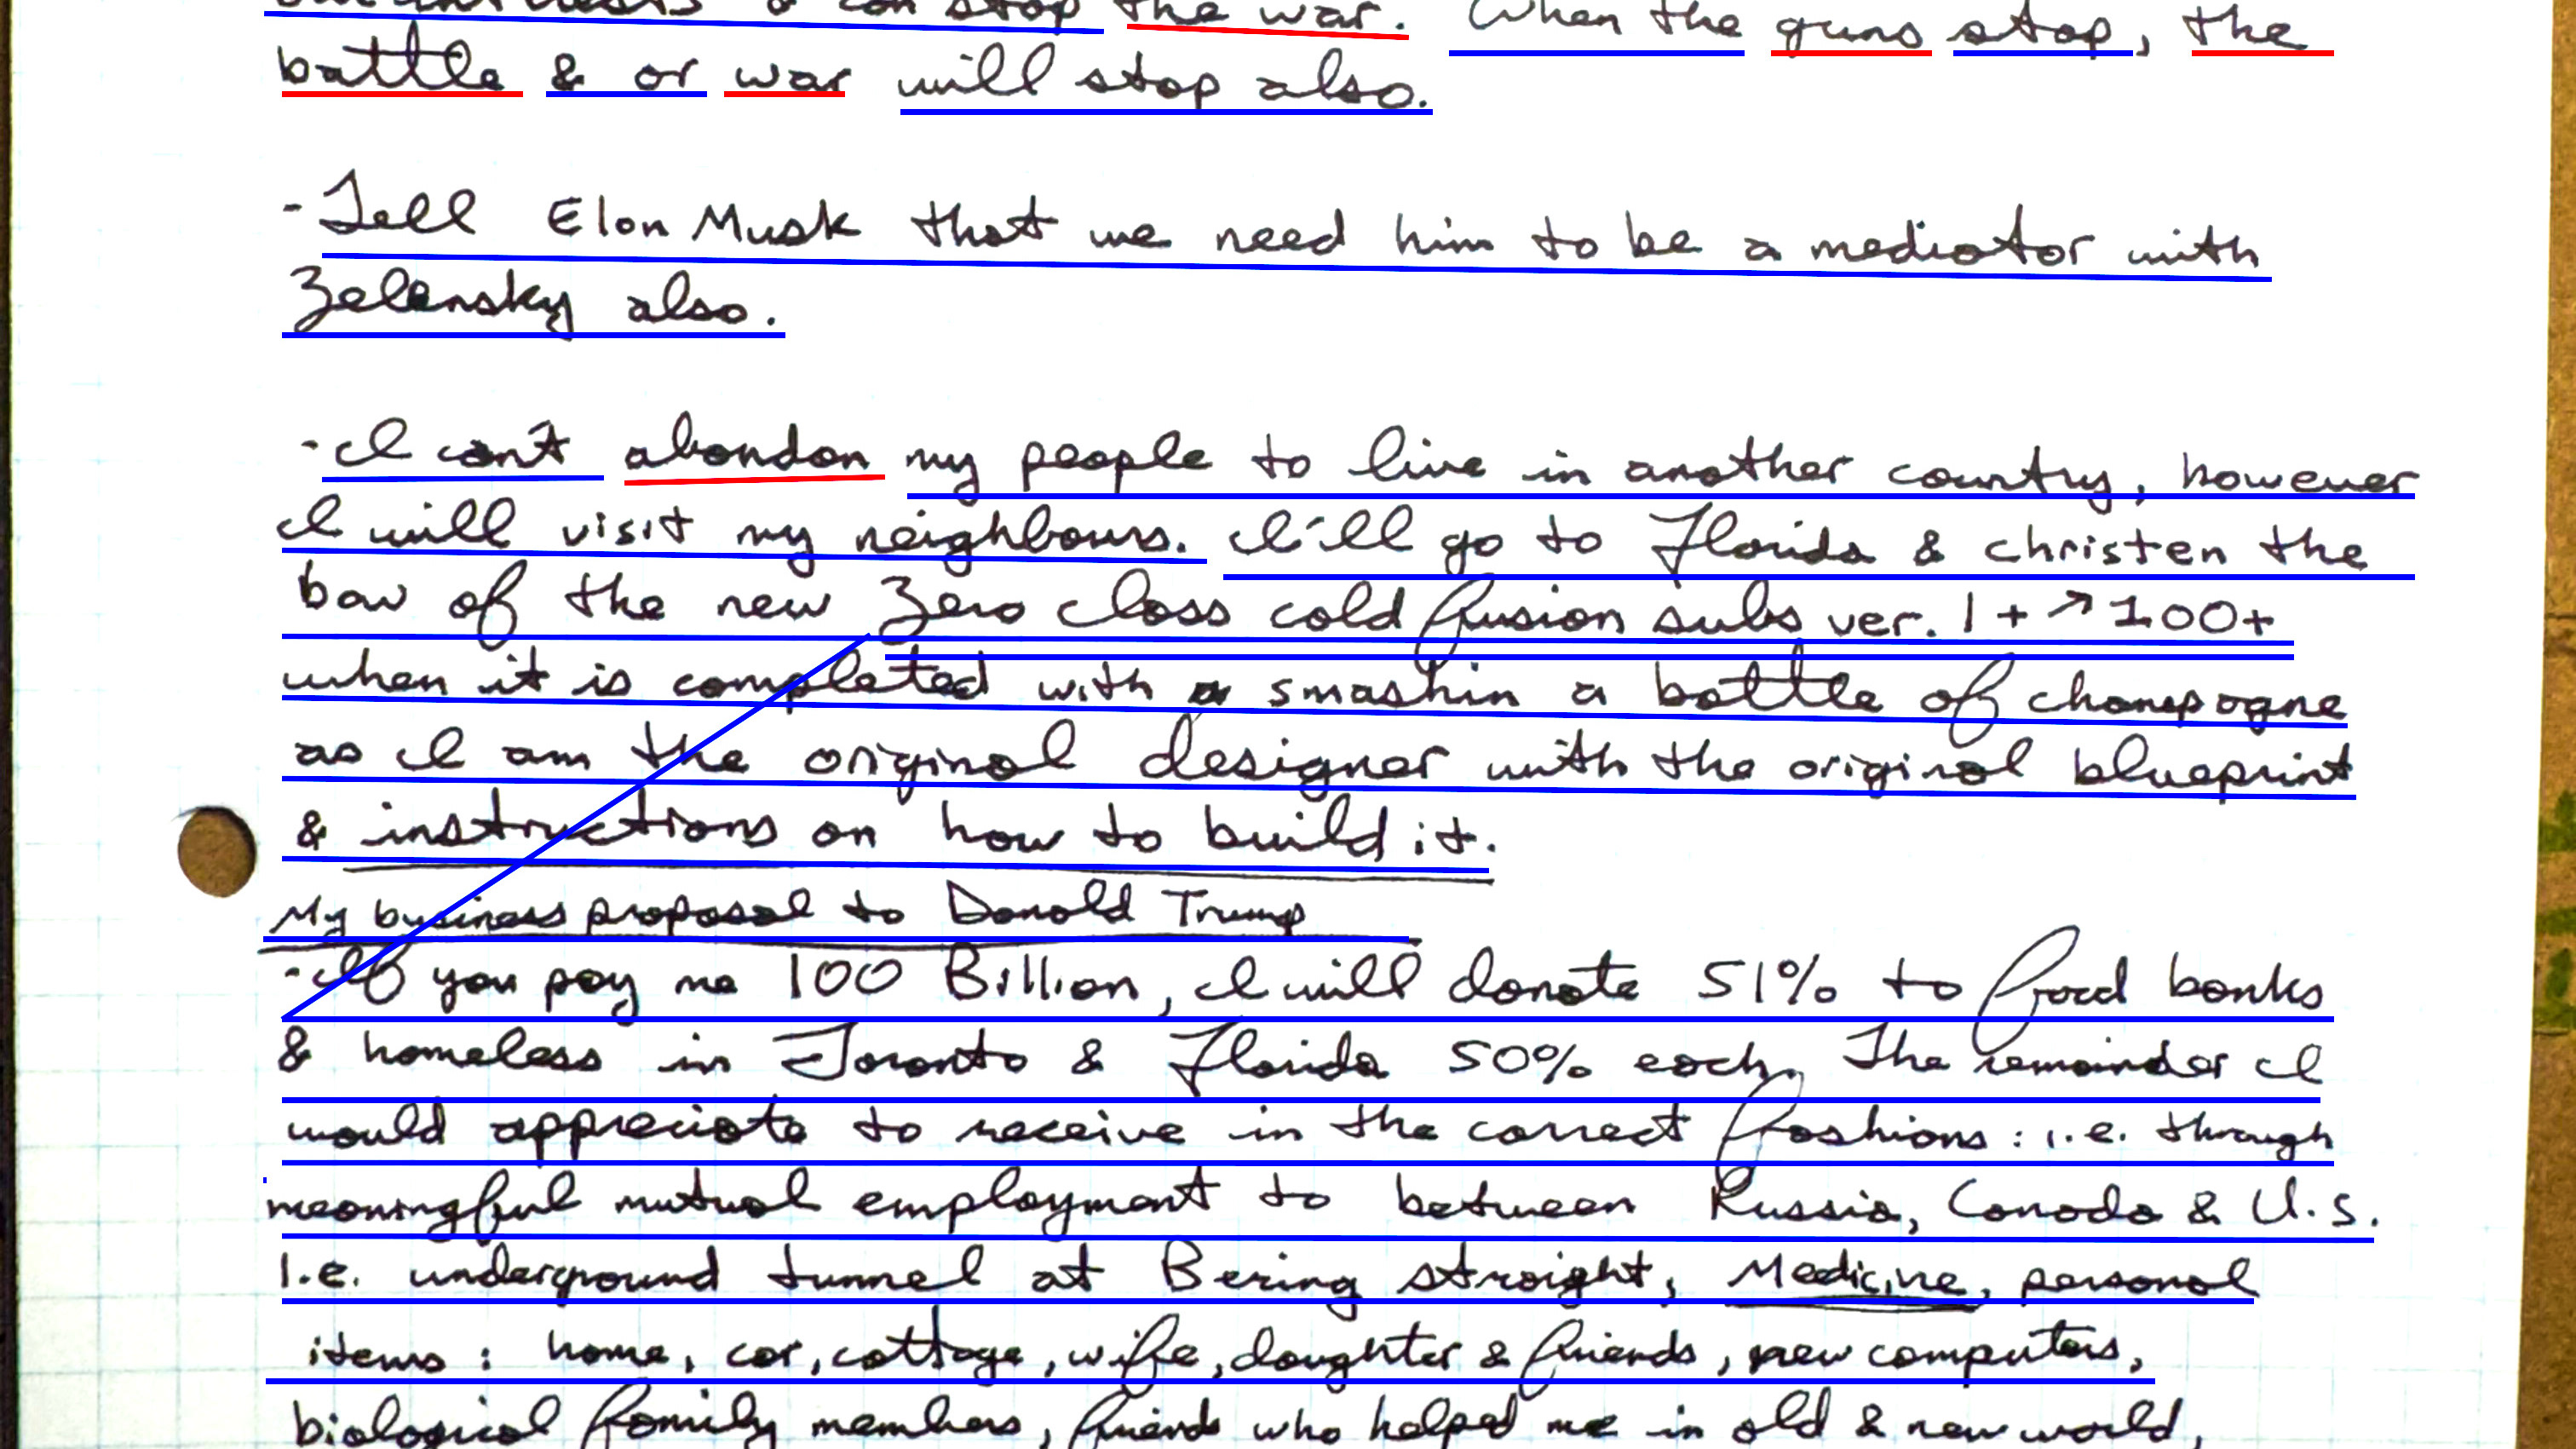 & can stop the war. When the guns stop, the
battle & or war will stop also.
- Tell Elon Musk that we need him to be a mediator with
Zelensky also.
- I can't abandon my people to live in another country, however
I will visit my neighbours. I'll go to Florida & christen the
bow of the new Zero class cold fusion subs ver. 1+ ↗ 100+
when it is completed with a smashin a bottle of champagne
as I am the original designer with the original blueprint
& instructions on how to build it.
My business proposal to Donald Trump
- If you pay me 100 Billion, I will donate 51% to food banks
& homeless in Toronto & Florida 50% each. The remainder I
would appreciate to receive in the correct fashions : i.e. through
meaningful mutual employment to between Russia, Canada & U.S.
I.e. underground tunnel at Bering straight, Medicine, personal
items : home, car, cottage, wife, daughter & friends, new computers,
biological family members, friends who helped me in old & new world,